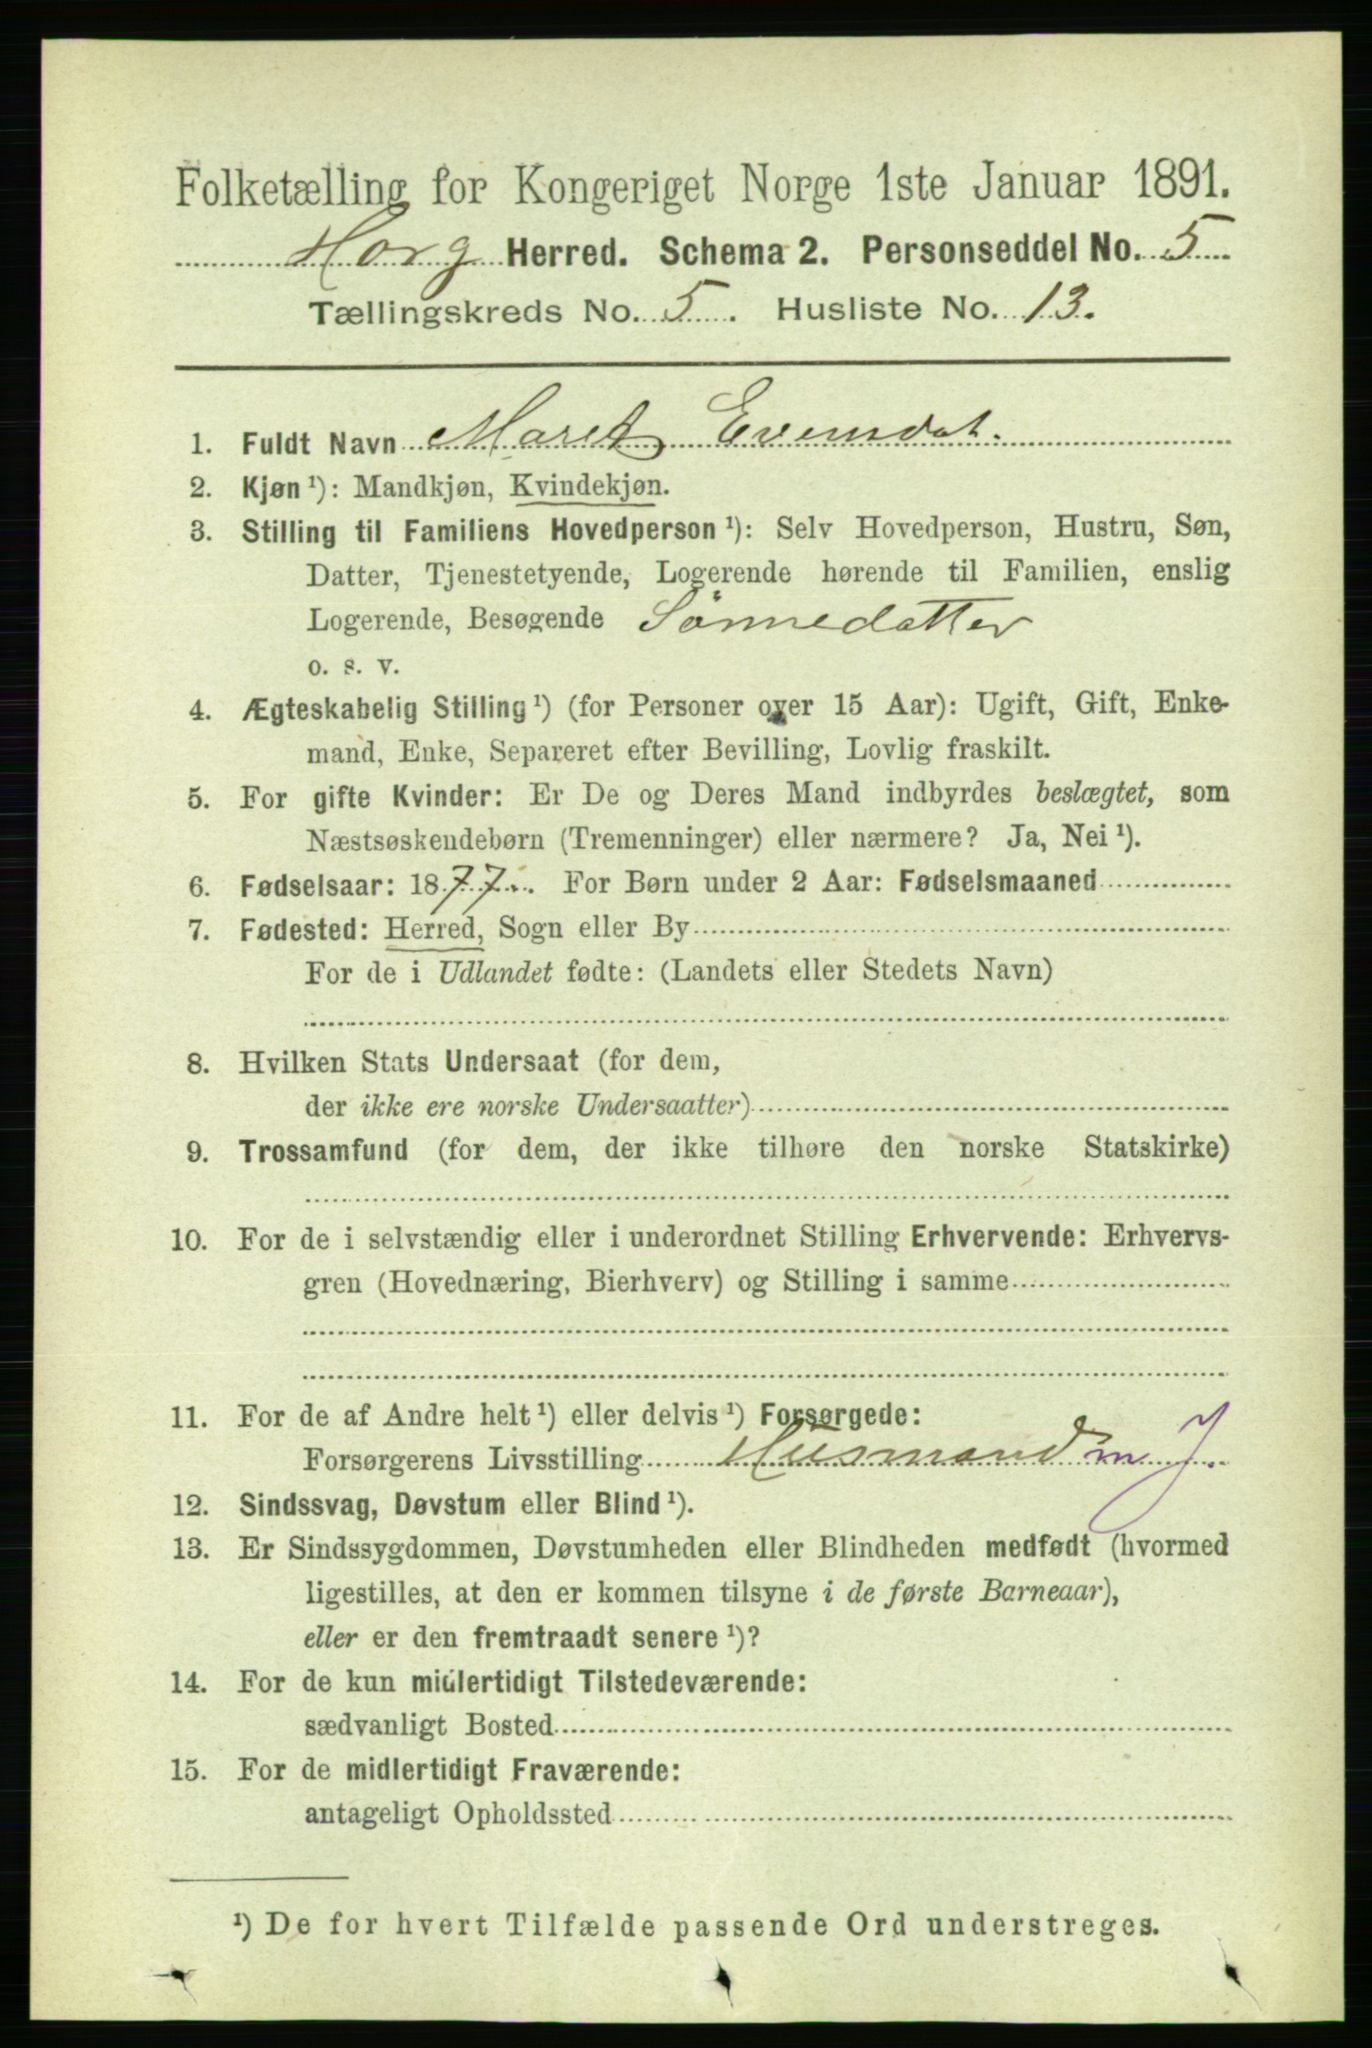 Folketælling for Kongeriget Norge 1ste Januar 1891.
Horg Herred. Schema 2. Personseddel No. 5
Tællingskreds No. 5. Husliste No. 13.
1. Fuldt Navn Maret Evensdat.
2. Kjøn ¹): Mandkjøn, Kvindekjøn.
3. Stilling til Familiens Hovedperson ¹): Selv Hovedperson, Hustru, Søn,
Datter, Tjenestetyende, Logerende hørende til Familien, enslig
Logerende, Besøgende Sønnedatter
o. s. v.
4. Ægteskabelig Stilling ¹) (for Personer over 15 Aar): Ugift, Gift, Enke-
mand, Enke, Separeret efter Bevilling, Lovlig fraskilt.
5. For gifte Kvinder: Er De og Deres Mand indbyrdes beslægtet, som
Næstsøskendebørn (Tremenninger) eller nærmere? Ja, Nei ¹).
6. Fødselsaar: 1877. For Børn under 2 Aar: Fødselsmaaned
7. Fødested: Herred, Sogn eller By
For de i Udlandet fødte: (Landets eller Stedets Navn)
8. Hvilken Stats Undersaat (for dem,
der ikke ere norske Undersaatter)
9. Trossamfund (for dem, der ikke tilhøre den norske Statskirke)
10. For de i selvstændig eller i underordnet Stilling Erhvervende: Erhvervs-
gren (Hovednæring, Bierhverv) og Stilling i samme
11. For de af Andre helt ¹) eller delvis ¹) Forsørgede:
Forsørgerens Livsstilling Husmand m J.
12. Sindssvag, Døvstum eller Blind ¹).
13. Er Sindssygdommen, Døvstumheden eller Blindheden medfødt (hvormed
ligestilles, at den er kommen tilsyne i de første Barneaar),
eller er den fremtraadt senere ¹)?
14. For de kun midlertidigt Tilstedeværende:
sædvanligt Bosted
15. For de midlertidigt Fraværende:
antageligt Opholdssted
¹) De for hvert Tilfælde passende Ord understreges.